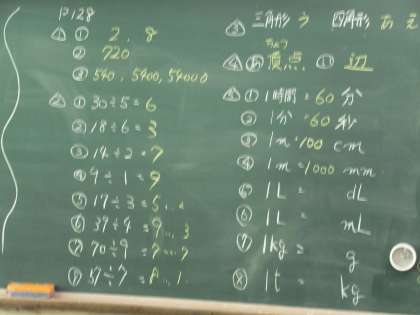 P128
△1 ① 2, 8
② 720
③ 540, 5400, 54000
△2 ① 30÷5=6
② 18÷6=3
③ 14÷2=7
④ 9÷1=9
⑤ 17÷3=5...
⑥ 39÷4=9...3
⑦ 70÷9=7...7
⑧ 57÷7=8...1
△3 三角形 う 四角形 あ え
ちょう
△4 あ 頂点 い 辺
△5 ① 1時間=60分
② 1分=60秒
③ 1m=100cm
④ 1m=1000mm
⑤ 1L= dL
⑥ 1L= mL
⑦ 1kg= g
⑧ 1t= kg